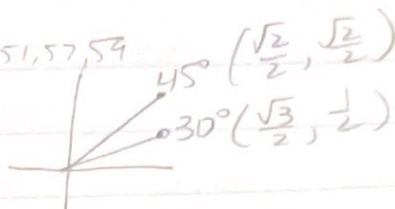 51, 57, 59
45° (√2/2, √2/2)
30° (√3/2, 1/2)